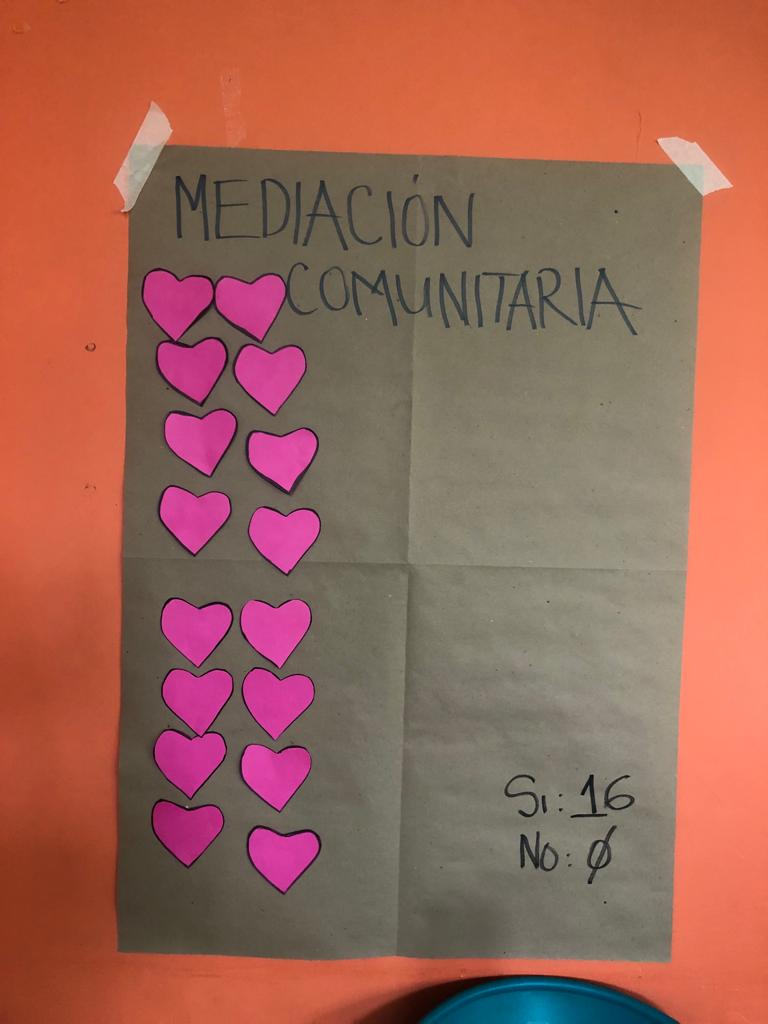 MEDIACIÓN
COMUNITARIA
Si: 16
No: Ø